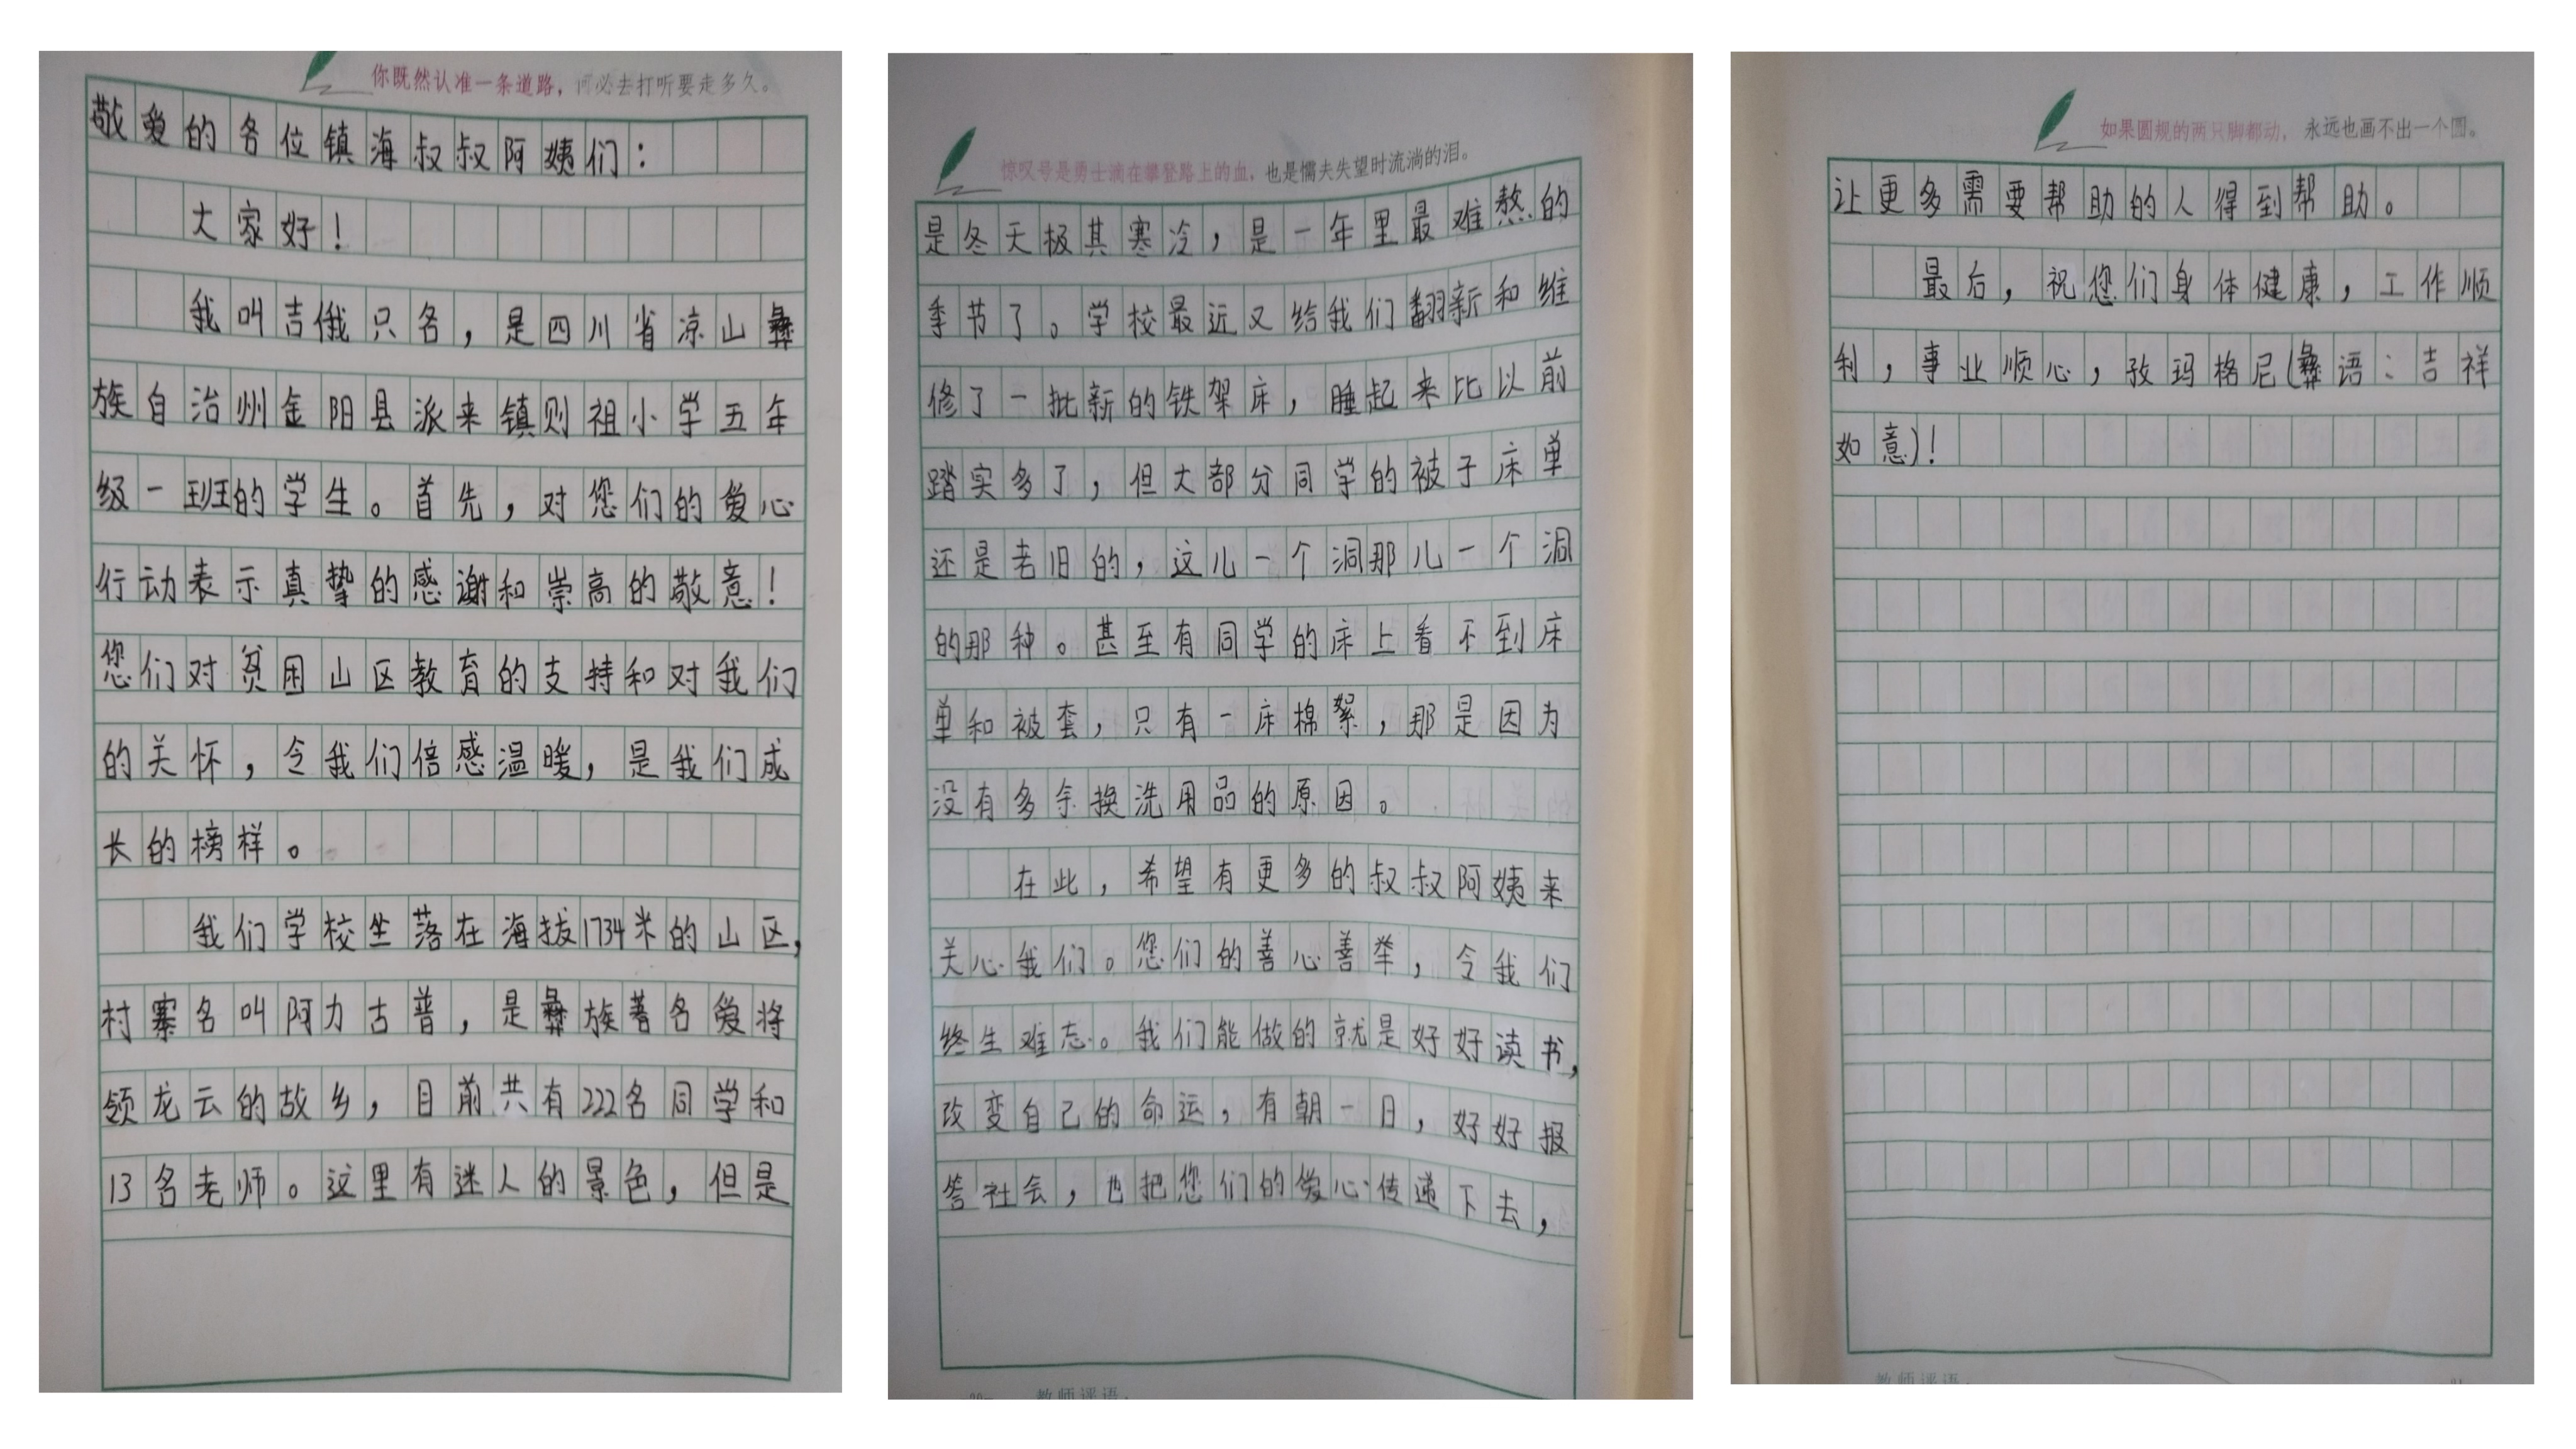 你既然认准一条道路，何必去打听要走多久。
敬爱的各位镇海叔叔阿姨们：
大家好！
我叫吉俄只名，是四川省凉山彝
族自治州金阳县派来镇则祖小学五年
级一班的学生。首先，对您们的爱心
行动表示真挚的感谢和崇高的敬意！
您们对贫困山区教育的支持和对我们
的关怀，令我们倍感温暖，是我们成
长的榜样。
我们学校坐落在海拔1734米的山区，
村寨名叫阿力古普，是彝族著名爱将
领龙云的故乡，目前共有222名同学和
13名老师。这里有迷人的景色，但是
惊叹号是勇士滴在攀登路上的血，也是懦夫失望时流淌的泪。
是冬天极其寒冷，是一年里最难熬的
季节了。学校最近又给我们翻新和维
修了一批新的铁架床，睡起来比以前
踏实多了，但大部分同学的被子床单
还是老旧的，这儿一个洞那儿一个洞
的那种。甚至有同学的床上看不到床
单和被套，只有一床棉絮，那是因为
没有多余换洗用品的原因。
在此，希望有更多的叔叔阿姨来
关心我们。您们的善心善举，令我们
终生难忘。我们能做的就是好好读书，
改变自己的命运，有朝一日，好好报
答社会，也把您们的爱心传递下去，
教师评语：
如果圆规的两只脚都动，永远也画不出一个圆。
让更多需要帮助的人得到帮助。
最后，祝您们身体健康，工作顺
利，事业顺心，孜玛格尼(彝语：吉祥
如意)！
教师评语：